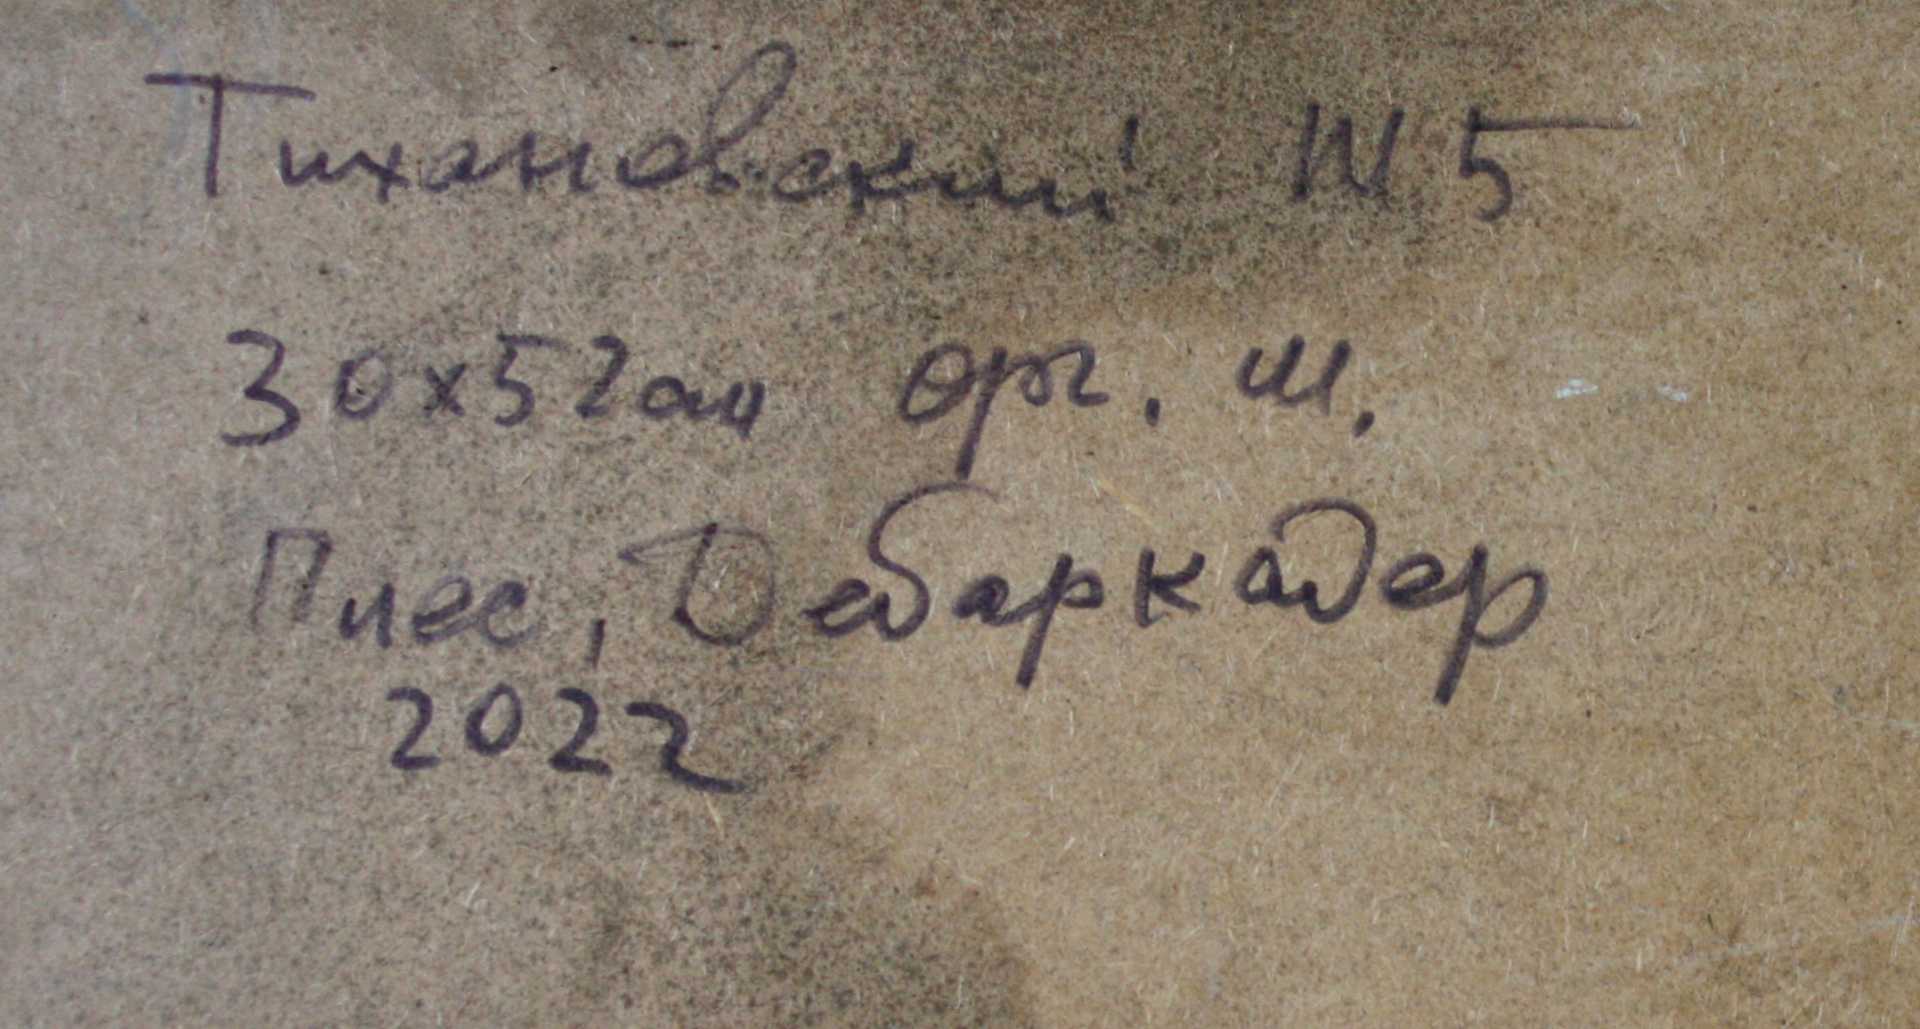 Тихановский Ш 5
30х52см орг. м.
Плес, Дебаркадер
2022